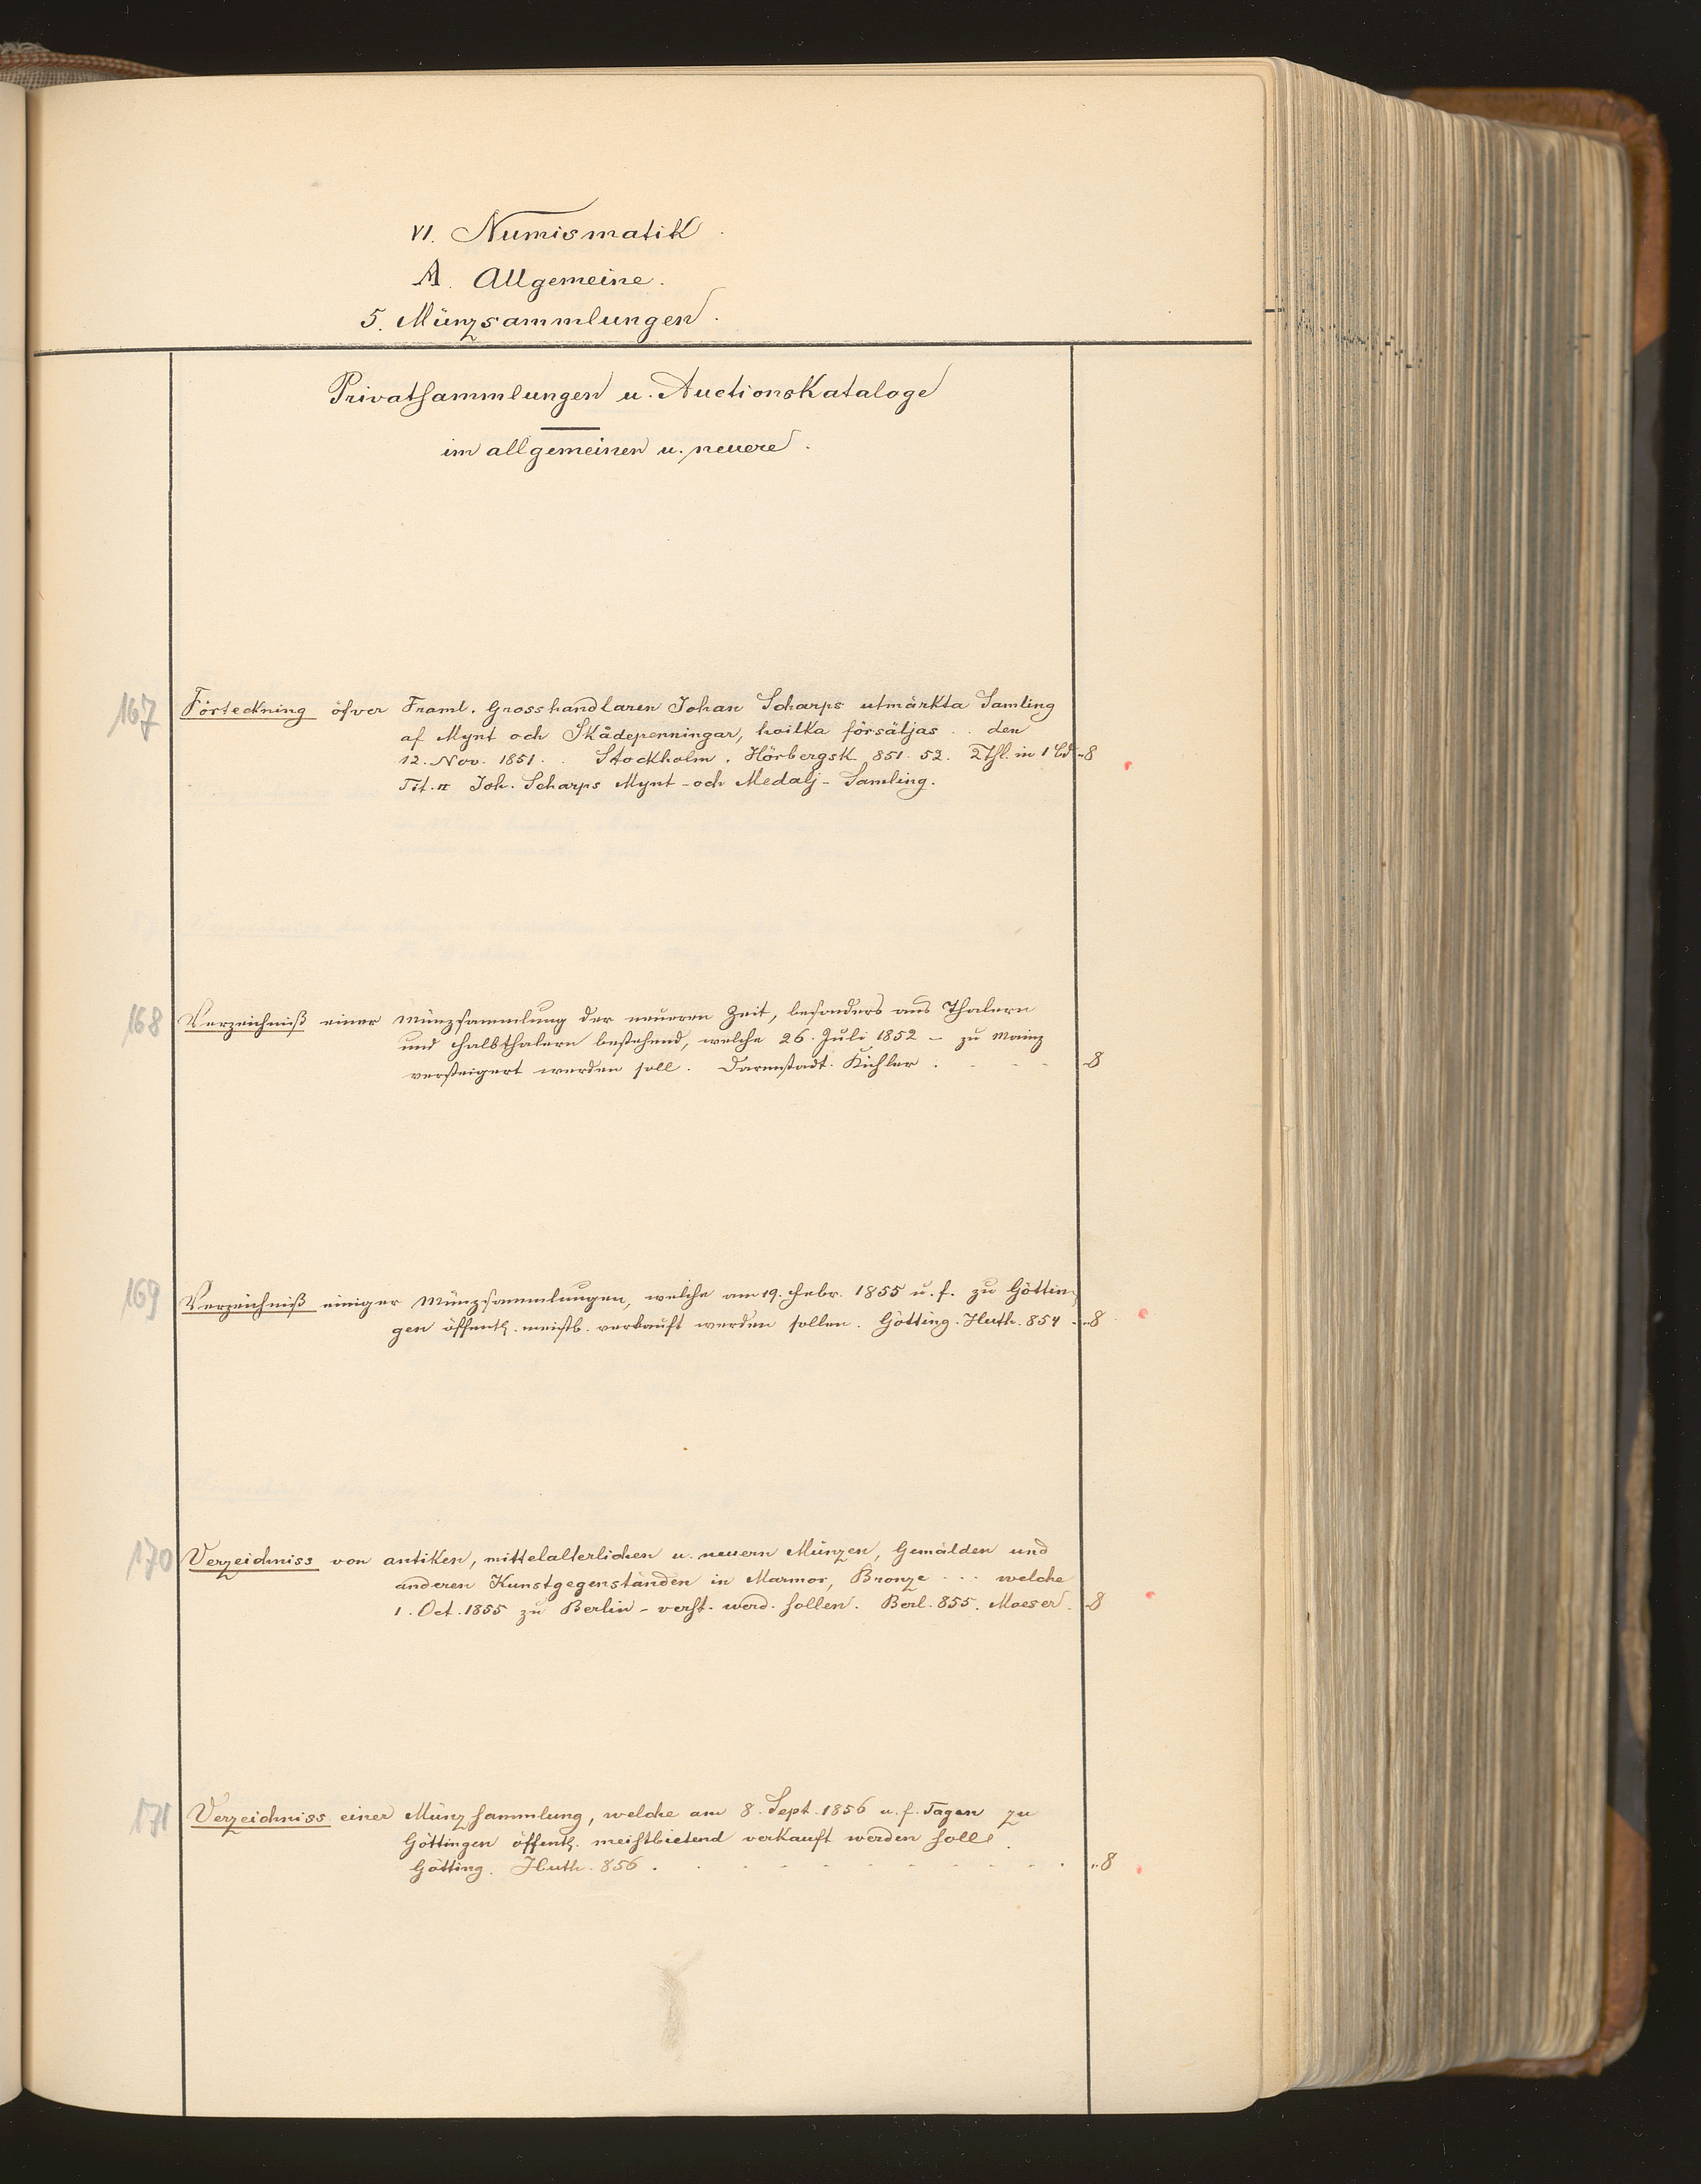 VI. Numismatik.
A. Allgemeine.
5. Münzsammlungen.
Privatsammlungen u. Auctionskataloge
im allgemeinen u. neuere.
167 Förteckning öfver Framl. Grosshandlaren Johan Scharps utmärkta Samling
af Mynt och Skådepenningar, hvilka försäljas . . den
12. Nov. 1851. . Stockholm. Hörbergsk 851. 52. 2 Thl. in 1 Bd 8
Tit. II Joh. Scharps Mynt- och Medalj-Samling.
168 Verzeichniß einer Münzsammlung der neueren Zeit, besonders aus Thalern
und Halbthalern bestehend, welche 26. Juli 1852 – zu Mainz
versteigert werden soll. Darmstadt. Kichler . . . . 8
169 Verzeichniß einiger Münzsammlungen, welche am 19. Febr. 1855 u. f. zu Göttin-
gen öffentl. meistb. verkauft werden sollen. Götting. Huth. 854 . 8
170 Verzeichniss von antiken, mittelalterlichen u. neuern Münzen, Gemälden und
anderen Kunstgegenständen in Marmor, Bronze . . . welche
1. Oct. 1855 zu Berlin – verst. werd. sollen. Berl. 855. Moeser. 8
171 Verzeichniss einer Münzsammlung, welche am 8. Sept. 1856 u. f. Tagen zu
Göttingen öffentl. meistbietend verkauft werden soll.
Götting. Huth. 856 . . . . . . . . . . . 8